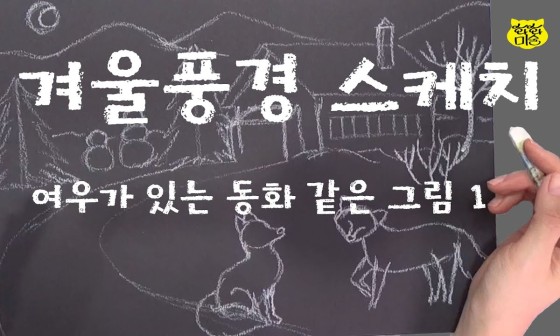 화화
미술
겨울풍경 스케치
여우가 있는 동화 같은 그림 1